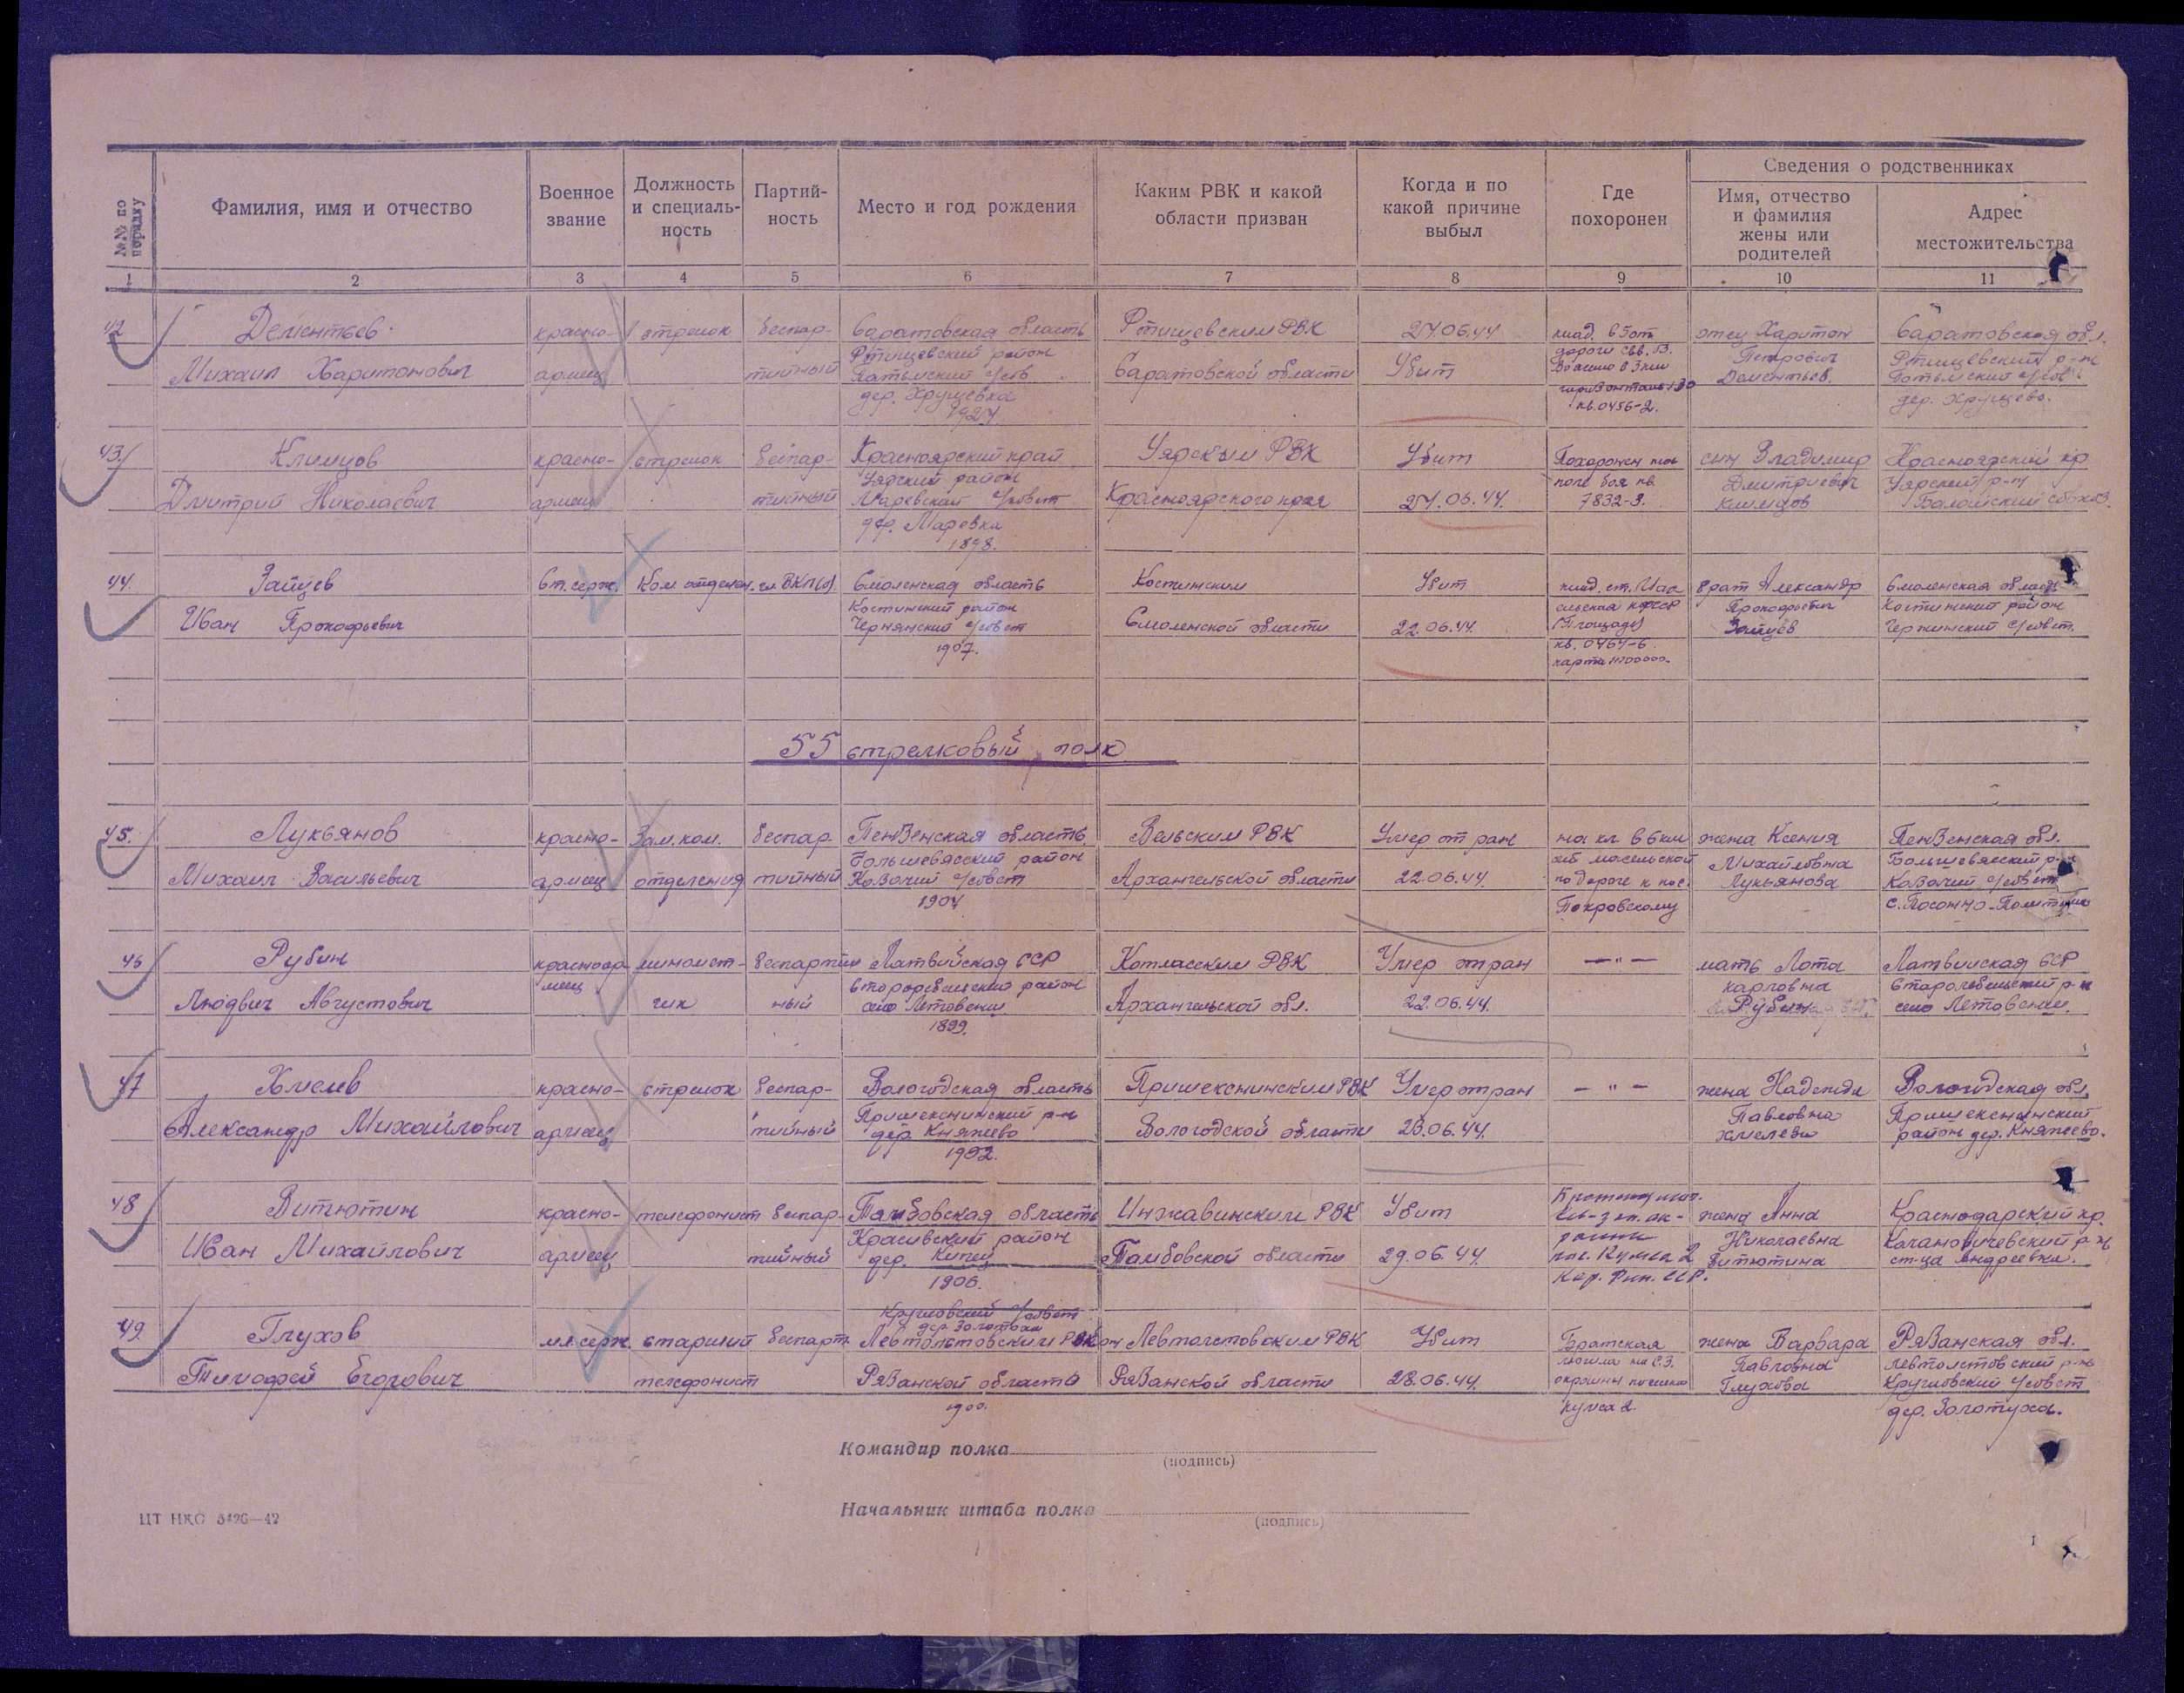 №№ по порядку
Фамилия, имя и отчество
Военное звание
Должность и специаль-ность
Партий-ность
Место и год рождения
Каким РВК и какой области призван
Когда и по какой причине выбыл
Где похоронен
Сведения о родственниках
Имя, отчество и фамилия жены или родителей
Адрес местожительства
1 2 3 4 5 6 7 8 9 10 11
42 Дементьев красно- стрелок беспар- Саратовская область Ртищевским РВК 27.06.44 отец Харитон Саратовская обл.
Михаил Харитонович армеец тийный Ртищевский район Саратовской области Убит Петрович Ртищевский р-н
дер. Хрущевка Дементьев. дер. Хрущево.
кв. 0456-2.
43. Климцов красно- стрелок беспар- Красноярский край Уярским РВК Убит Похоронен на сын Владимир Красноярский кр.
Дмитрий Николаевич армеец тийный Уярский район Красноярского края 27.06.44. поле боя кв. Дмитриевич Уярский р-н
Маревский с/совет 7832-9. Климцов Балайский
дер. Маревка
1898.
44. Зайцев Ст. серж. Ком. отделен. чл. ВКП(б) Смоленская область Костинским Убит брат Александр Смоленская область
Иван Прокофьевич Костинский район Смоленской области 22.06.44. (Площадь) Прокофьевич Костинский район
с/совет кв. 0467-6. Зайцев с/совет.
1907. карта
55 стрелковый полк
45. Лукьянов красно- Зам. ком. беспар- Пензенская область Вельским РВК Умер от ран на кл. в 6 км жена Ксения Пензенская обл.
Михаил Васильевич армеец отделения тийный Большевясский район Архангельской области 22.06.44. по дороге к пос. Михайловна Большевясский р-н
Казачий с/совет Покровскому Лукьянова Казачий с/совет
1904
46 Рубин красноар- миномет- беспартий- Латвийская ССР Котласским РВК Умер от ран —"— мать Лота Латвийская ССР
Людвич Августович меец чик ный район Архангельской обл. 22.06.44. Карловна р-н
село Летовский Рубина село Летовский.
1899.
47 Хмелев красно- стрелок беспар- Вологодская область Пришекснинским РВК Умер от ран —"— жена Надежда Вологодская обл.
Александр Михайлович армеец тийный Пришекснинский р-н Вологодской области 23.06.44. Павловна Пришекснинский
дер. Княжево Хмелева район дер. Княжево.
1902.
48 Витютин красно- телефонист беспар- Тамбовская область Инжавинским РВК Убит жена Анна Краснодарский кр.
Иван Михайлович армеец тийный Красивский район Тамбовской области 29.06.44. Николаевна Кагановичевский р-н
дер. Кар. Фин. ССР. Витютина ст-ца Андреевка.
1906.
Кругловский с/совет
дер. Золотуха
49 Глухов мл. серж. старший беспарт. Левтолстовским РВК Левтолстовским РВК Убит Братская жена Варвара Рязанская обл.
Тимофей Егорович телефонист Рязанской области Рязанской области 28.06.44. могила на С.З. Павловна Левтолстовский р-н
1900. окраины поселка Глухова Кругловский с/совет
дер. Золотуха.
Командир полка
(подпись)
Начальник штаба полка
(подпись)
ЦТ НКО 5426—42